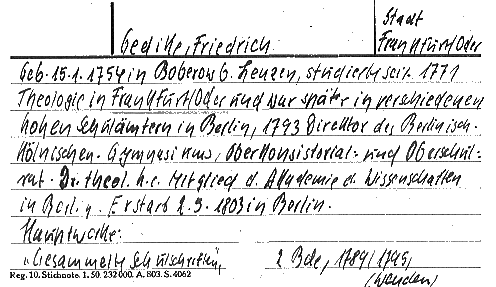 Stadt
Gedike, Friedrich Frankfurt/Oder
Geb. 15.1.1754 in Boberow b. Lenzen, studierte seit 1771
Theologie in Frankfurt/Oder und war später in verschiedenen
hohen Schulämtern in Berlin, 1793 Direktor des Berlinisch-
Kölnischen Gymnasiums, Oberkonsistorial- und Oberschul-
rat. Dr. theol. h.c. Mitglied d. Akademie d. Wissenschaften
in Berlin. Er starb 2.5.1803 in Berlin.
Hauptwerke:
"Gesammelte Schulschriften, 2 Bde, 1789/1795,
Reg. 10. Stichnote. 1. 50. 232 000. A. 803. S. 4062
(wenden)